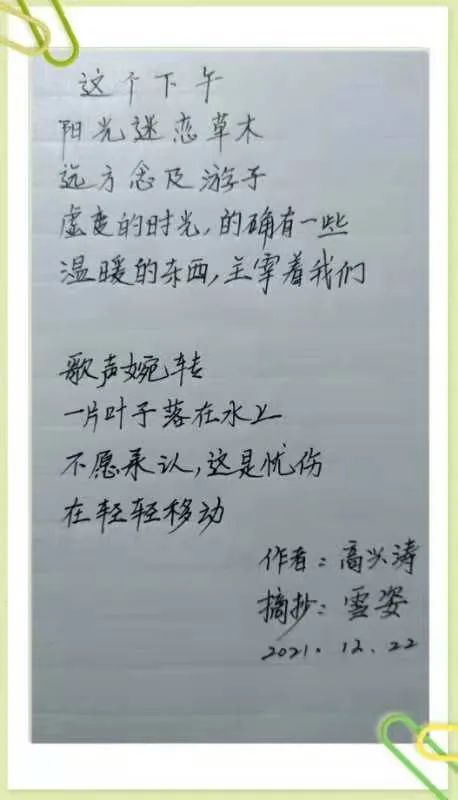 这个下午
阳光迷恋草木
远方念及游子
虚度的时光,的确有一些
温暖的东西,主宰着我们
歌声婉转
一片叶子落在水上
不愿承认,这是忧伤
在轻轻移动
作者:高兴涛
摘抄:雪姿
2021.12.22